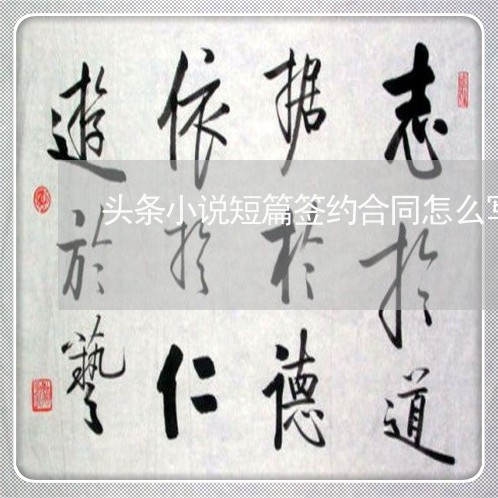 志扵道
据扵德
依扵仁
遊於藝
头条小说短篇签约合同怎么